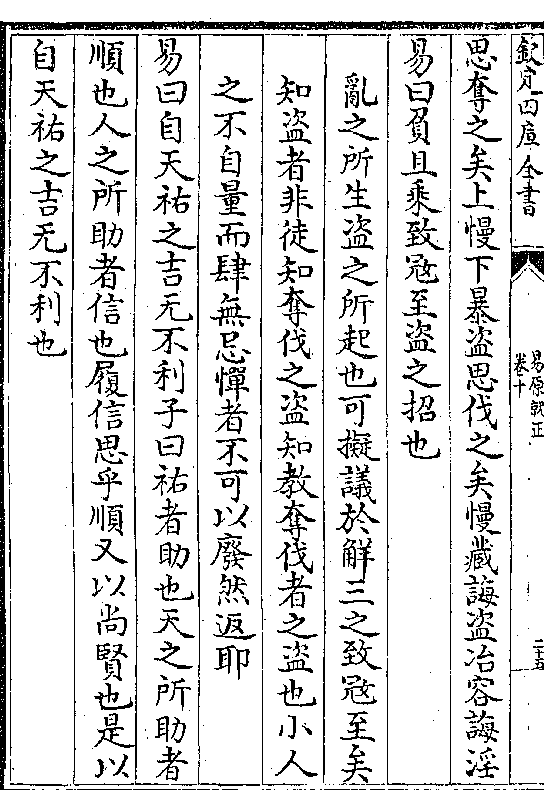 欽定四庫全書
易原就正
卷十
二十五
思奪之矣上慢下暴盜思伐之矣慢藏誨盜冶容誨淫
易曰負且乘致冦至盜之招也
亂之所生盜之所起也可擬議於解三之致冦至矣
知盜者非徒知奪伐之盜知教奪伐者之盜也小人
之不自量而肆無忌憚者不可以廢然返耶
易曰自天祐之吉无不利子曰祐者助也天之所助者
順也人之所助者信也履信思乎順又以尚賢也是以
自天祐之吉无不利也